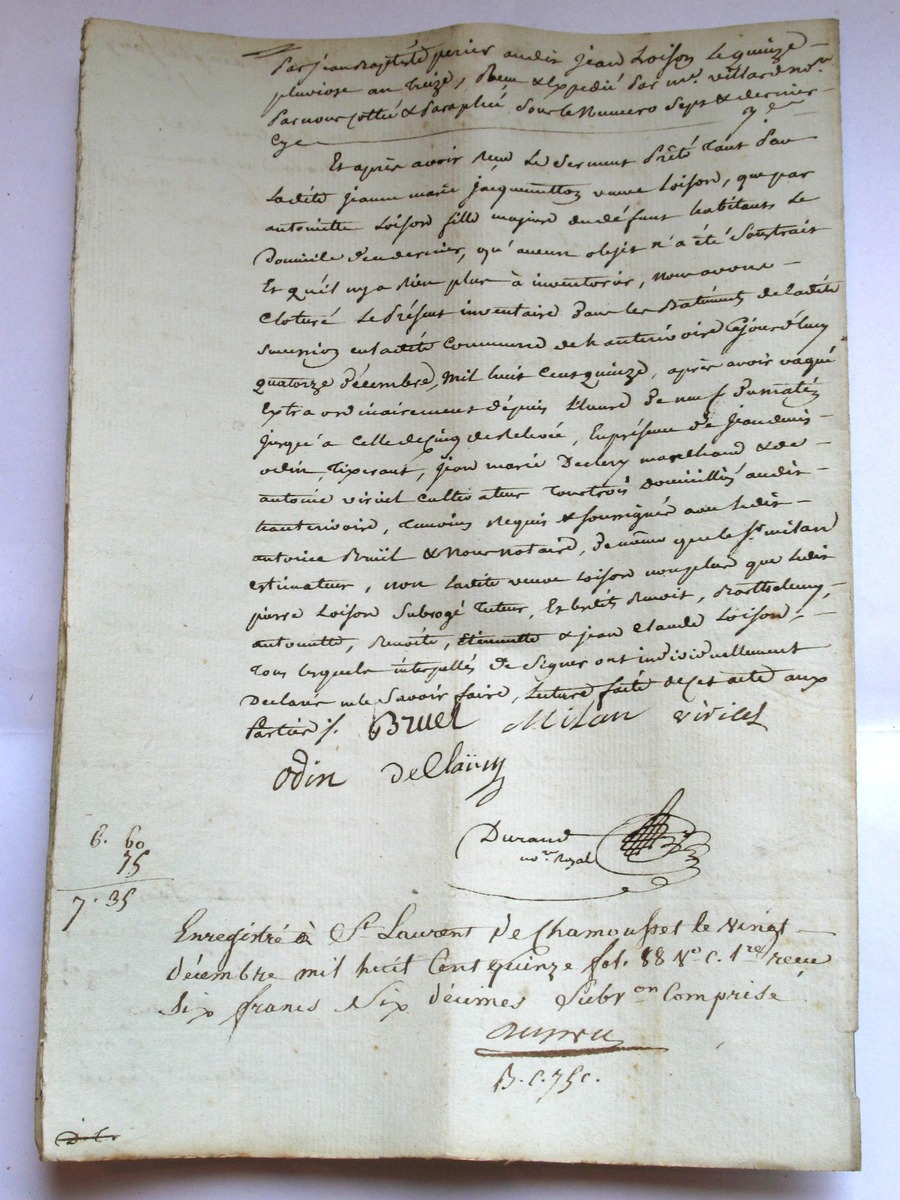 Par jean Baptiste perier audit jean Loison le quinze
pluviose an treize, Reçu & Expedié par me. villard nore.
Par nous cotté & Paraphé sous le Numero sept & dernier
Cy 7e
Et après avoir Reçu le serment Prêté tant par
Ladite jeanne marie jacquemetton veuve Loison, que par
antoinette Loison fille majeure dudéfunt habitants le
Domicile dece dernier, qu'aucun objet n'a été soustrait
Et qu'il n'y a Rien plus à inventorier, Nous avons
Cloturé le Présent inventaire dans les Batiments de Ladite
succession en Ladite Commune de hauterivoire Cejourd'huy
quatorze Décembre, Mil huit Cent quinze, après avoir vaqué
Extraordinairement depuis l'heure De neuf Dumatin
jusqu'à celle de Cinq de Relevée, En présence de jean denis
odin, tixerant, jean marie Declery marchand & de
antoine viricel cultivateur tous trois domiciliés audit
hauterivoire, temoins Requis & soussignés avec Ledit
antoine Bruël & Nous notaire, De même que le sr. milan
estimateur, non Ladite veuve Loison non plus que Ledit
pierre Loison subrogé tuteur, Benoit, Barthelemy,
antoinette, Benoite, Etiennette & jean Claude Loison,
tous lesquels interpellés de signer ont individuellement
Declaré ne le savoir faire, Lecture faite de cet acte aux
Parties /.
Bruel Milan viricel
odin deClaïrÿ
Durand
nore. Royal
6. 60
75
7. 35
Enregistré à St Laurent De Chamousset le vingt
décembre mil huit Cent quinze fol. 88 Vo. C. 1re reçu
Six francs Six décimes Subvon Comprise
B. C. 75 c.